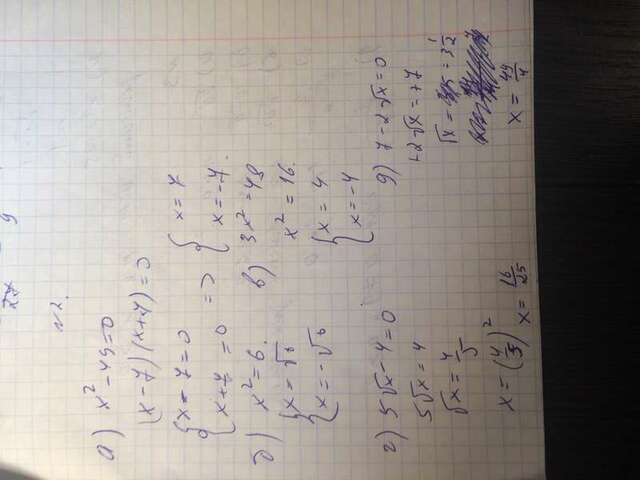 27 9
№2.
а) x² - 49 = 0
(x - 7)(x + 7) = 0
{ x - 7 = 0
x + 7 = 0 => { x = 7
x = -7.
б) x² = 6.
{ x = √6
x = -√6
в) 3x² = 48
x² = 16.
{ x = 4
x = -4
г) 5√x - 4 = 0
5√x = 4
√x = 4/5
x = (4/5)²
x = 16/25
д) 7 - 2√x = 0
+2√x = +7
√x = 3 1/2
x = 49/4